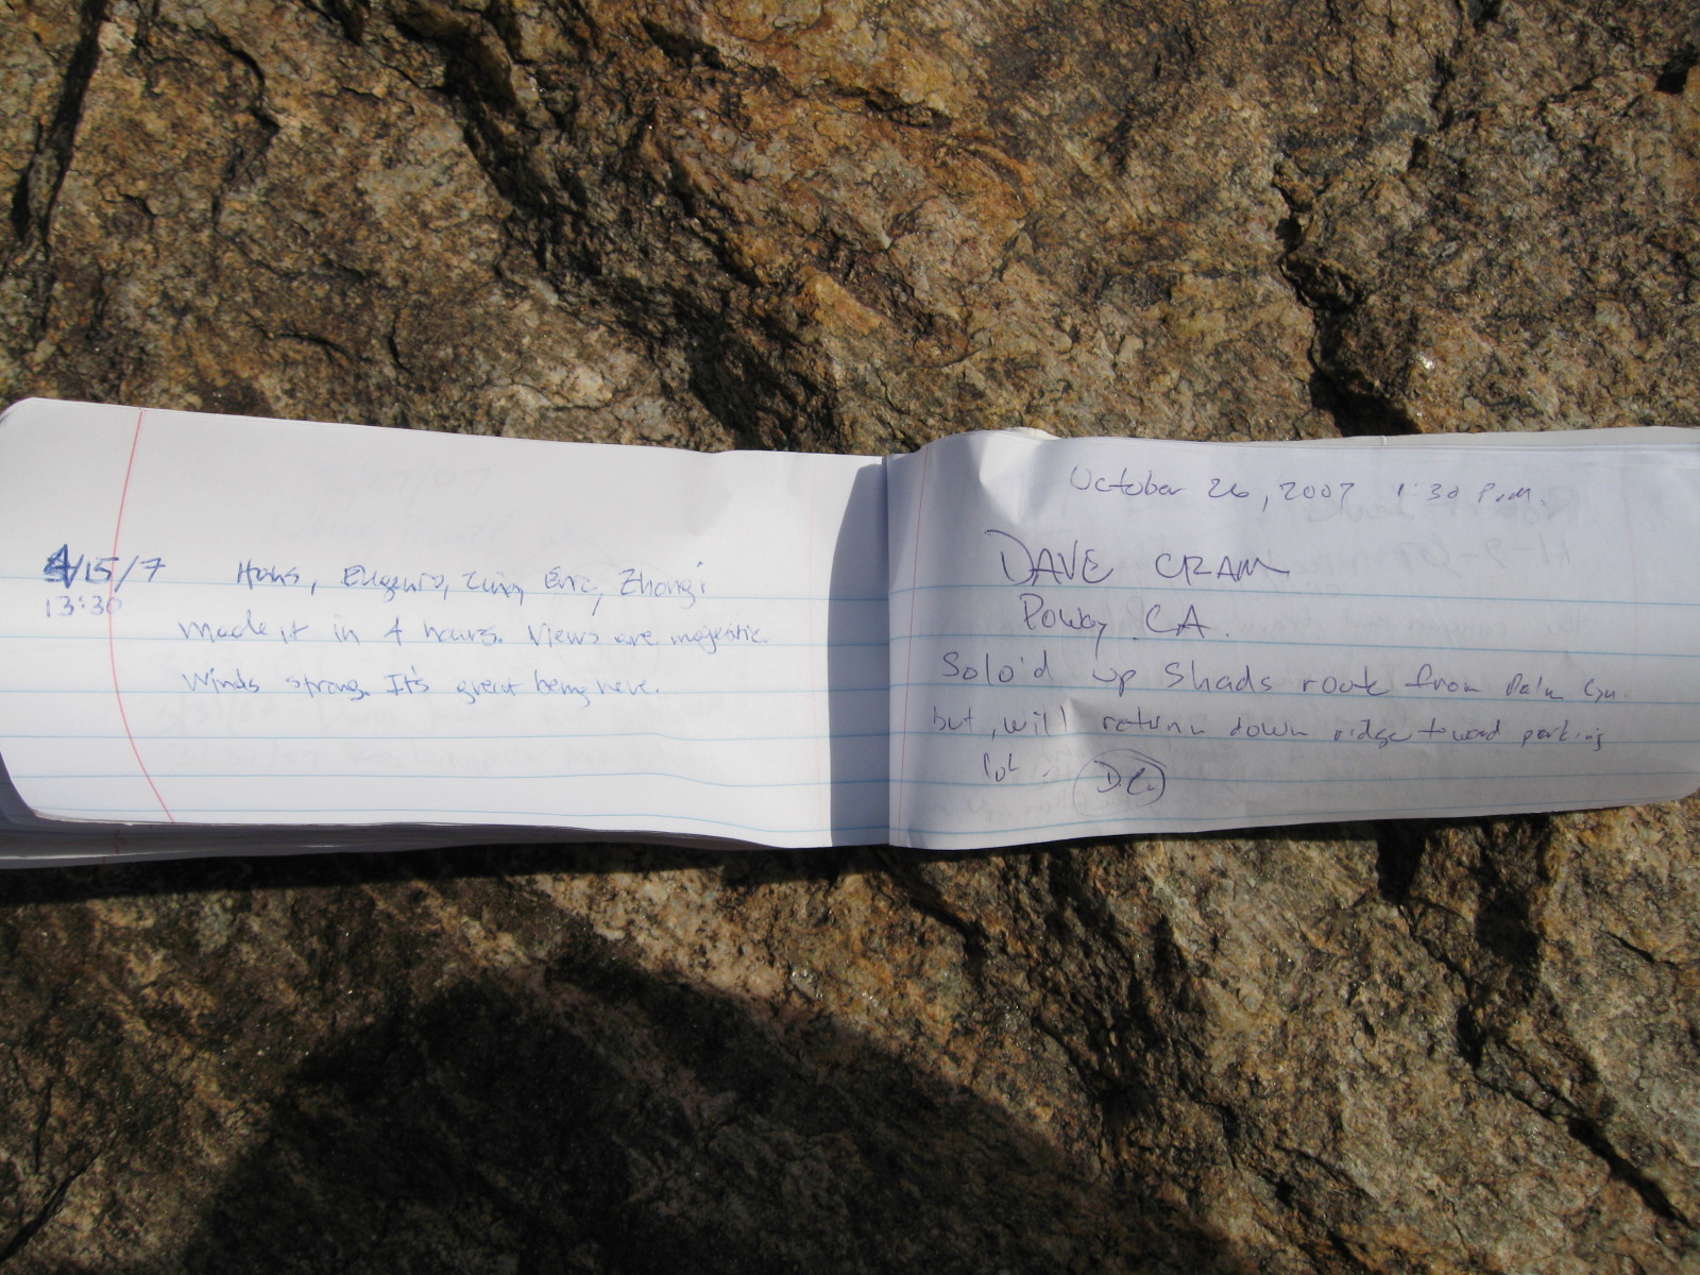 4/15/7 Hans, Eugenio, Eric, Zhongi
13:30
Made it in 4 hours. Views are majestic.
Winds strong. It's great being here.
October 26, 2007 1:30 P.M.
DAVE CRAM
Poway, CA.
Solo'd up Shads route from Palm Cyn.
but, will return down ridge toward parking
lot.
D.C.